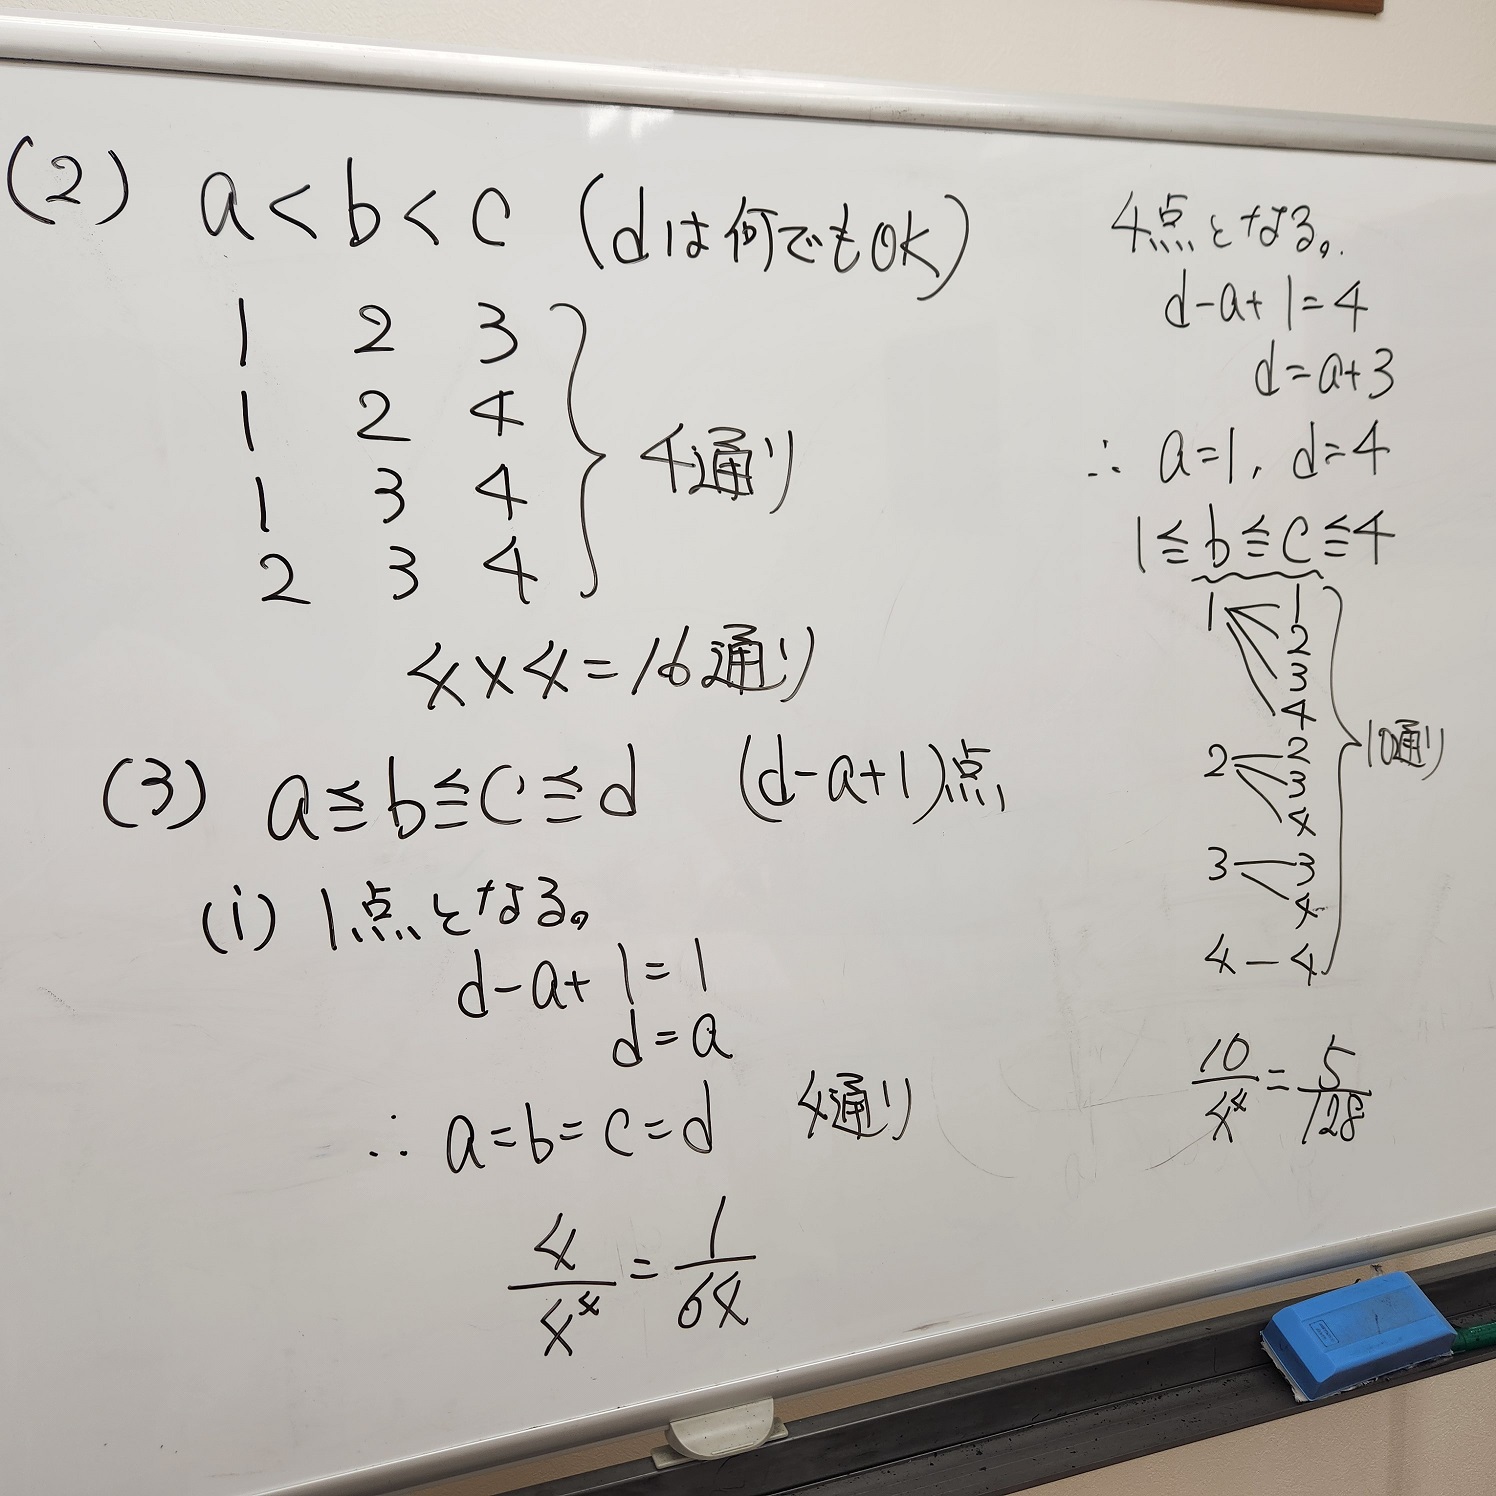 (2) a<b<c (dは何でもOK)
1 2 3
1 2 4
1 3 4
2 3 4
4通り
4×4=16通り
(3) a≦b≦c≦d (d-a+1)点
(i) 1点となる。
d-a+1=1
d=a
∴ a=b=c=d 4通り
4/4⁴=1/64
4点となる。
d-a+1=4
d=a+3
∴ a=1, d=4
1≦b≦c≦4
1 1
2
3
4
2 2
3
4
3 3
4
4 4
10通り
10/4⁴=5/128